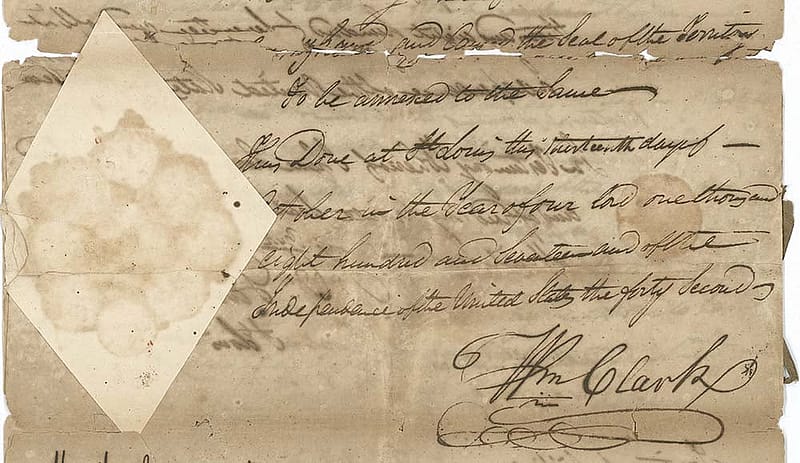 my hand and caused the Seal of the Territory
to be annexed to the Same
Thus Done at St Louis this thirteenth day of
October in the Year of our lord one thousand
eight hundred and Seventeen and of the
Independence of the United States the forty Second
Wm Clark